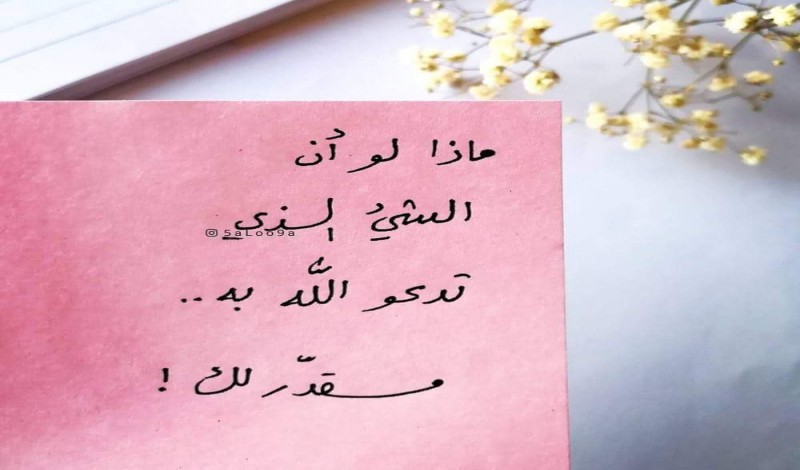 ماذا لو أن
الشيء الذي
@5aLoo9a
تدعو اللّٰه به ..
مقدّر لك !